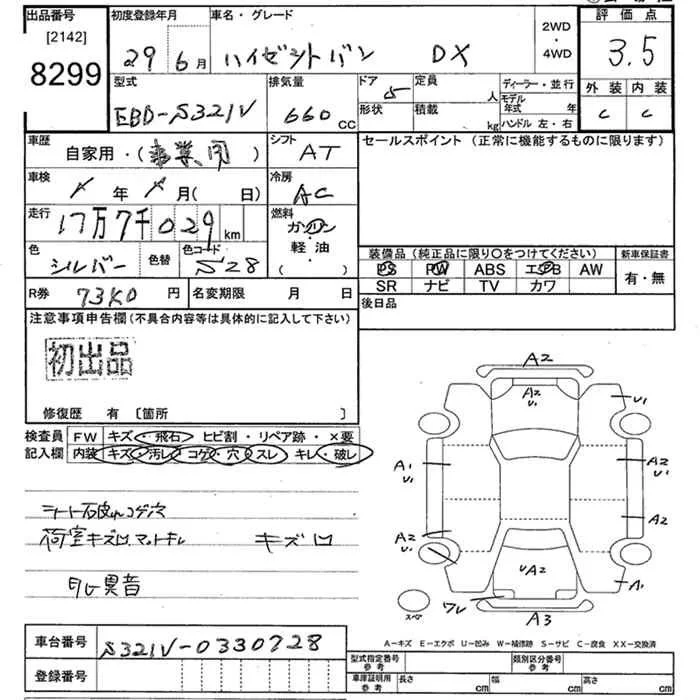 出品番号 初度登録年月 車名・グレード 2WD・4WD 評価点
[2142]
8299
29年6月 ハイゼットバン DX 3.5
型式 排気量 ドア 定員 ディーラー・並行 外装 内装
EBD-S321V 660cc 5 人 モデル年式 年 C C
形状 積載 kg ハンドル 左・右
車歴 シフト セールスポイント (正常に機能するものに限ります)
自家用・(事業用) AT
車検 年 月(日) 冷房 AC
走行 17万7千029km 燃料 ガソリン
軽・油
( )
色 シルバー 色替 色コード S28
装備品(純正品に限り○をつけてください) 新車保証書
PS PW ABS エアB AW 有・無
SR ナビ TV カワ
R券 73K0円 名変期限 月 日 後日品
注意事項申告欄(不具合内容等は具体的に記入して下さい)
初出品
修復歴 有 [箇所 ]
検査員記入欄 FW キズ・飛石・ヒビ割・リペア跡・×要
内装 キズ・汚レ・コゲ・穴・スレ・キレ・破レ
シート破れコゲ穴
荷室キズ凹マットキレ キズ凹
異音
A2
A2
U1
U1
A1
U1
A2
U1
A2
U1
A2
UA2
A1
ワレ
A3
スペア
A-キズ E-エクボ U-凹み W-補修跡 S-サビ C-腐食 XX-交換済
車台番号 S321V-0330728
登録番号
型式指定番号 参考 類別区分番号 参考
車庫証明用 参考 長さ cm 幅 cm 高さ cm